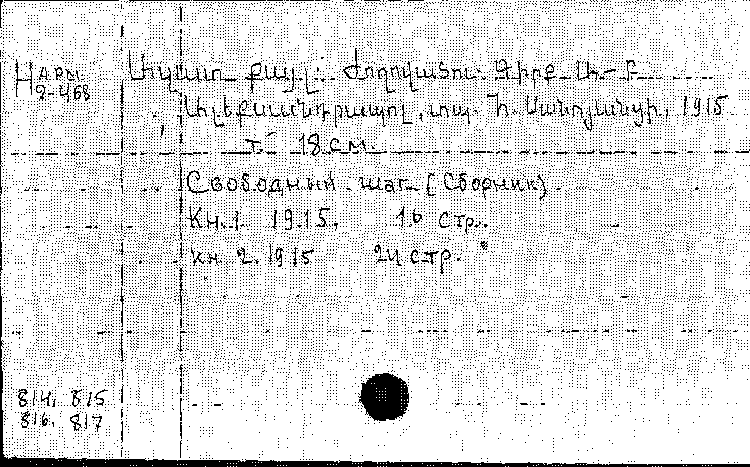 Н АРМ.
2-468
Ազատ քայլ: Ժողովածու. Գիրք Ա-Բ
Ալեքսանդրապոլ, տպ. Հ. Սանոյանցի, 1915
т. 18 см.
Свободный шаг. (Сборник).
Кн. 1. 1915. 16 стр.
Кн. 2. 1915 24 стр.
814, 815
816, 817